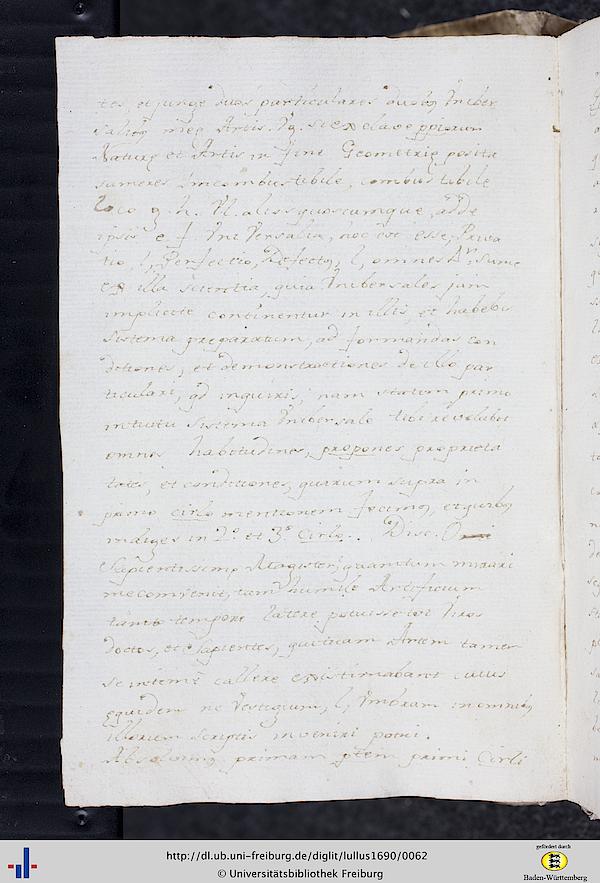 tes, et junge duos particulares duobus Univer
salibus meę Artis. Vg. si ex clave ppiorum
Naturę et Artis in fine Geometrię posita
sumeres Imcombustibile, combustibile
loco g. h. Vl. alios quoscumque, adde
ipsis e. f. Universalia, hoc est esse, Priva
tio, l, Perfectio, Defectus, l, omnes Sume
ex illa scientia, quia Universales jam
implicite continentur in illis, et habebis
Sistema preparatum, ad formandas con
ditiones, et demonstrationes de illo par
ticulari, qd inquiris; nam statim primo
intuitu Sistema Universale tibi revelabit
omnes habitudines, propones proprieta
tes, et conditiones, quarum supra in
primo cirlo mentionem fecimus, et quibus
indiges in 2.º et 3.º Cirlo. Disc. O
Sapientissime Magister, quantum mirari
me convenit, tam humile Artificium
tanto tempore latere potuisse tot Viros
doctos, et Sapientes, qui ticam Artem tamen
se intime callere existimabant cuius
equidem ne Vestigium, l, Umbram in omnibus
illorum scriptis invenire potui.
Absolvimus primam ptem primi Cirli
http://dl.ub.uni-freiburg.de/diglit/lullus1690/0062
© Universitätsbibliothek Freiburg
gefördert durch
Baden-Württemberg